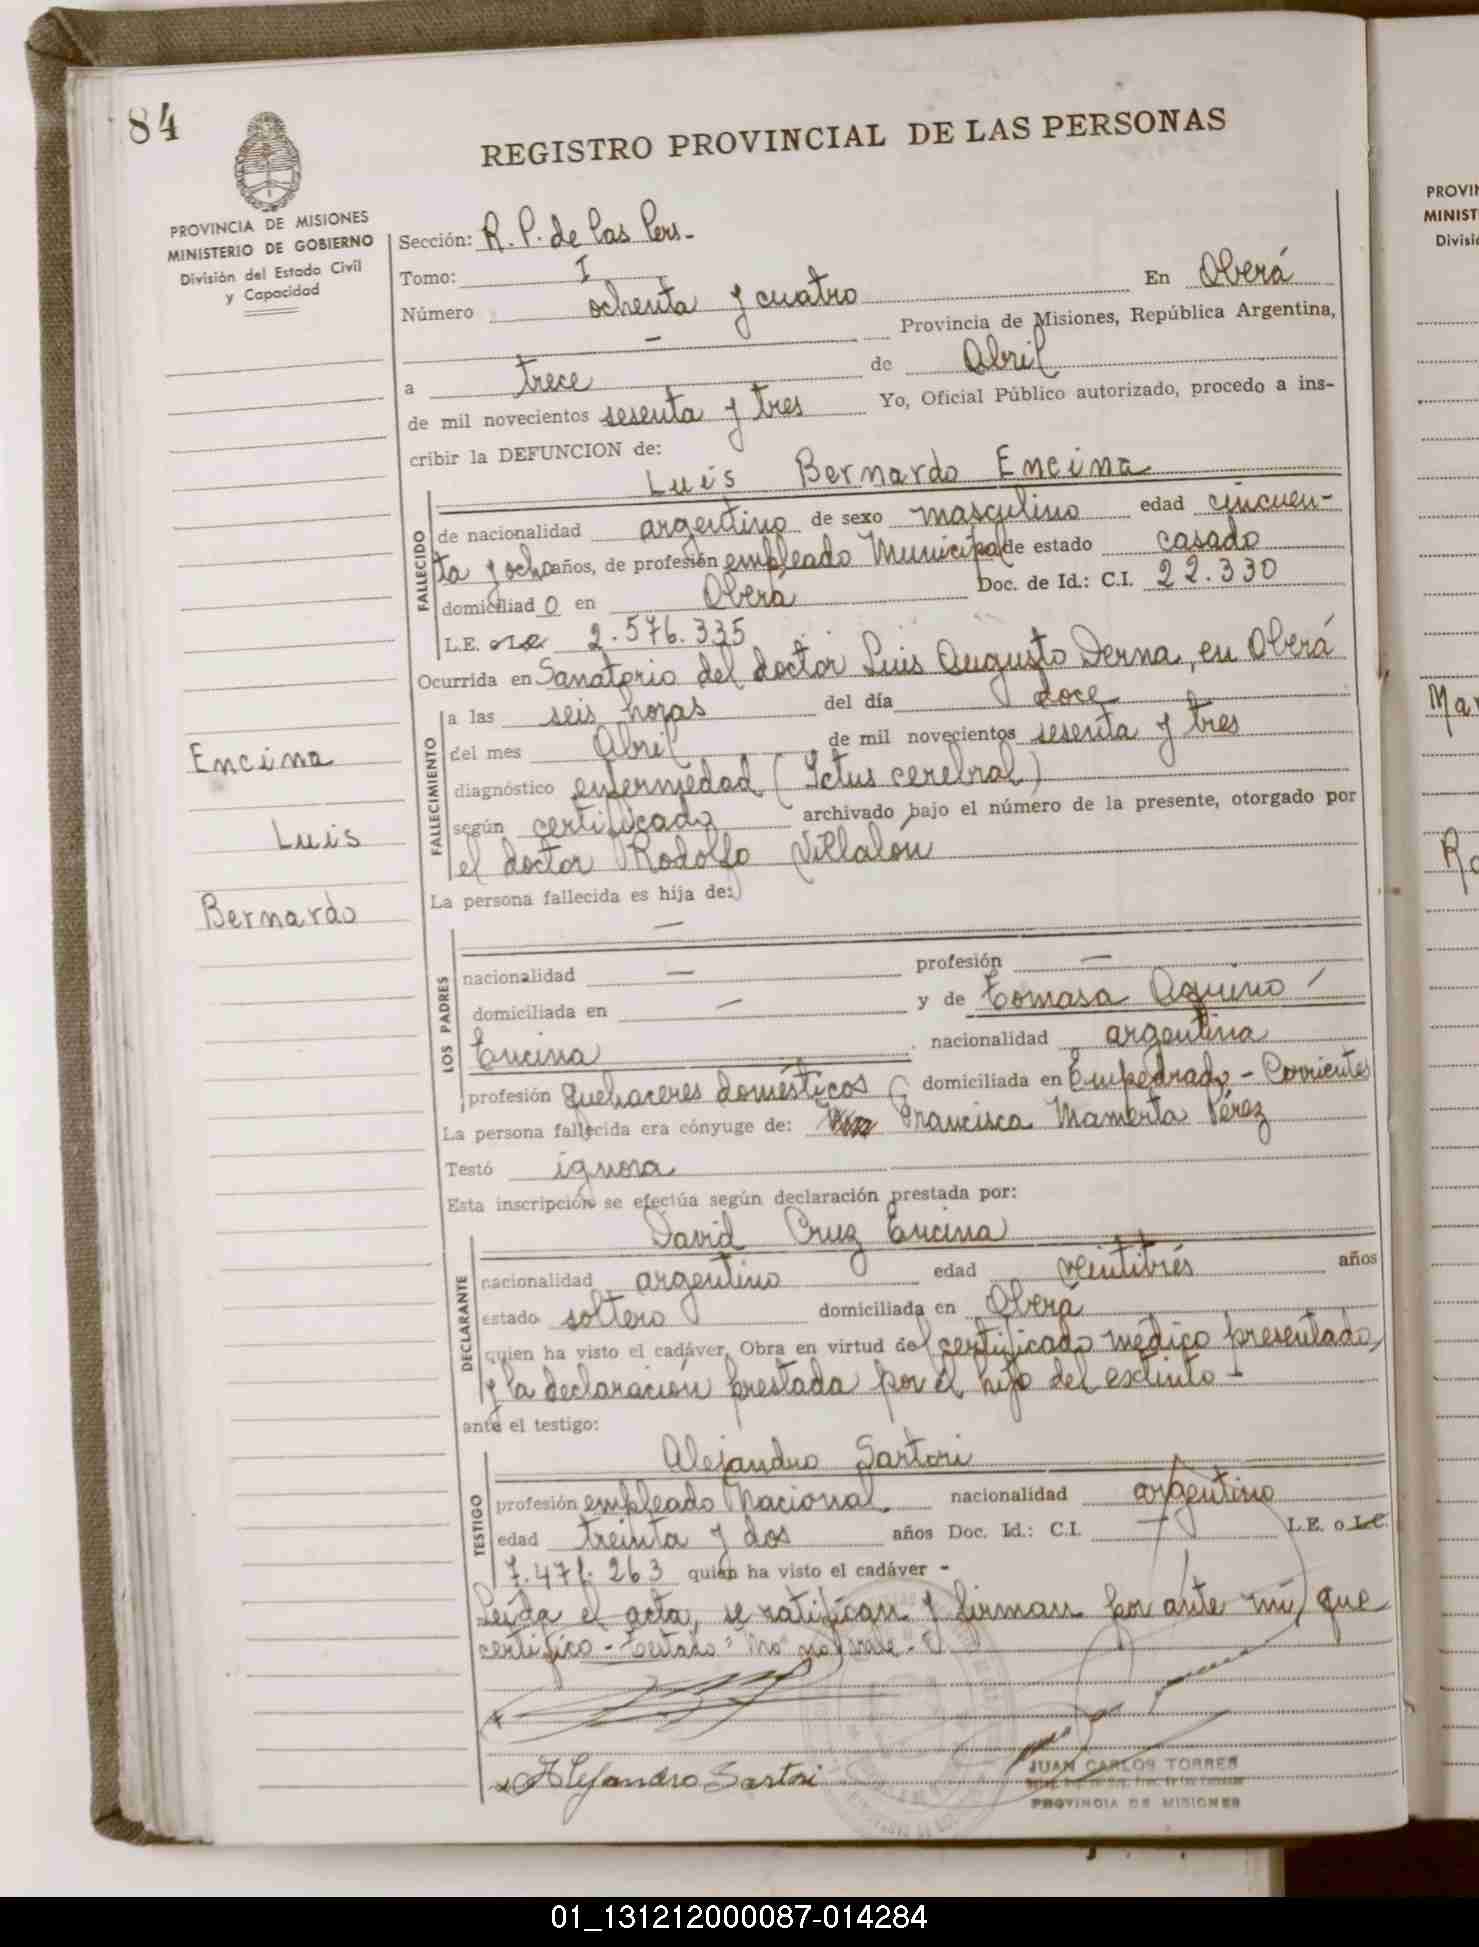 84
REGISTRO PROVINCIAL DE LAS PERSONAS
PROVINCIA DE MISIONES
MINISTERIO DE GOBIERNO
División del Estado Civil
y Capacidad
Sección: R. P. de las Pers-
Tomo: I
Número ochenta y cuatro En Oberá
— Provincia de Misiones, República Argentina,
a trece de Abril
de mil novecientos sesenta y tres Yo, Oficial Público autorizado, procedo a ins-
cribir la DEFUNCION de:
Luis Bernardo Encina
FALLECIDO
de nacionalidad argentino de sexo masculino edad cincuen-
ta y ocho años, de profesión empleado Municipal de estado casado
domiciliado en Oberá Doc. de Id.: C.I. 22.330
L.E. o L.C. 2.576.335
Ocurrida en Sanatorio del doctor Luis Augusto Derna, en Oberá
FALLECIMIENTO
a las seis horas del día doce
del mes Abril de mil novecientos sesenta y tres
diagnóstico enfermedad (Ictus cerebral)
según certificado archivado bajo el número de la presente, otorgado por
el doctor Rodolfo Villalón
Encina
Luis
Bernardo
La persona fallecida es hija de:
—
LOS PADRES
nacionalidad — profesión —
domiciliada en — y de Tomasa Aquino
Encina nacionalidad argentina
profesión quehaceres domésticos domiciliada en Empedrado - Corrientes
La persona fallecida era cónyuge de: Francisca Mamerta Pérez
Testó ignora
Esta inscripción se efectúa según declaración prestada por:
David Cruz Encina
DECLARANTE
nacionalidad argentino edad veintitrés años
estado soltero domiciliada en Oberá
quien ha visto el cadáver. Obra en virtud del certificado médico presentado,
y la declaración prestada por el hijo del extinto-
ante el testigo:
Alejandro Sartori
TESTIGO
profesión empleado Nacional nacionalidad argentino
edad treinta y dos años Doc. Id.: C.I. — L.E. o L.C.
7.471.263 quien ha visto el cadáver -
Leída el acta, se ratifican y firman por ante mí, que
certifico - Testado: no vale -
Alejandro Sartori
JUAN CARLOS TORRES
PROVINCIA DE MISIONES
PROVIN
MINIST
Divisió
Mar
Ro
01_131212000087-014284